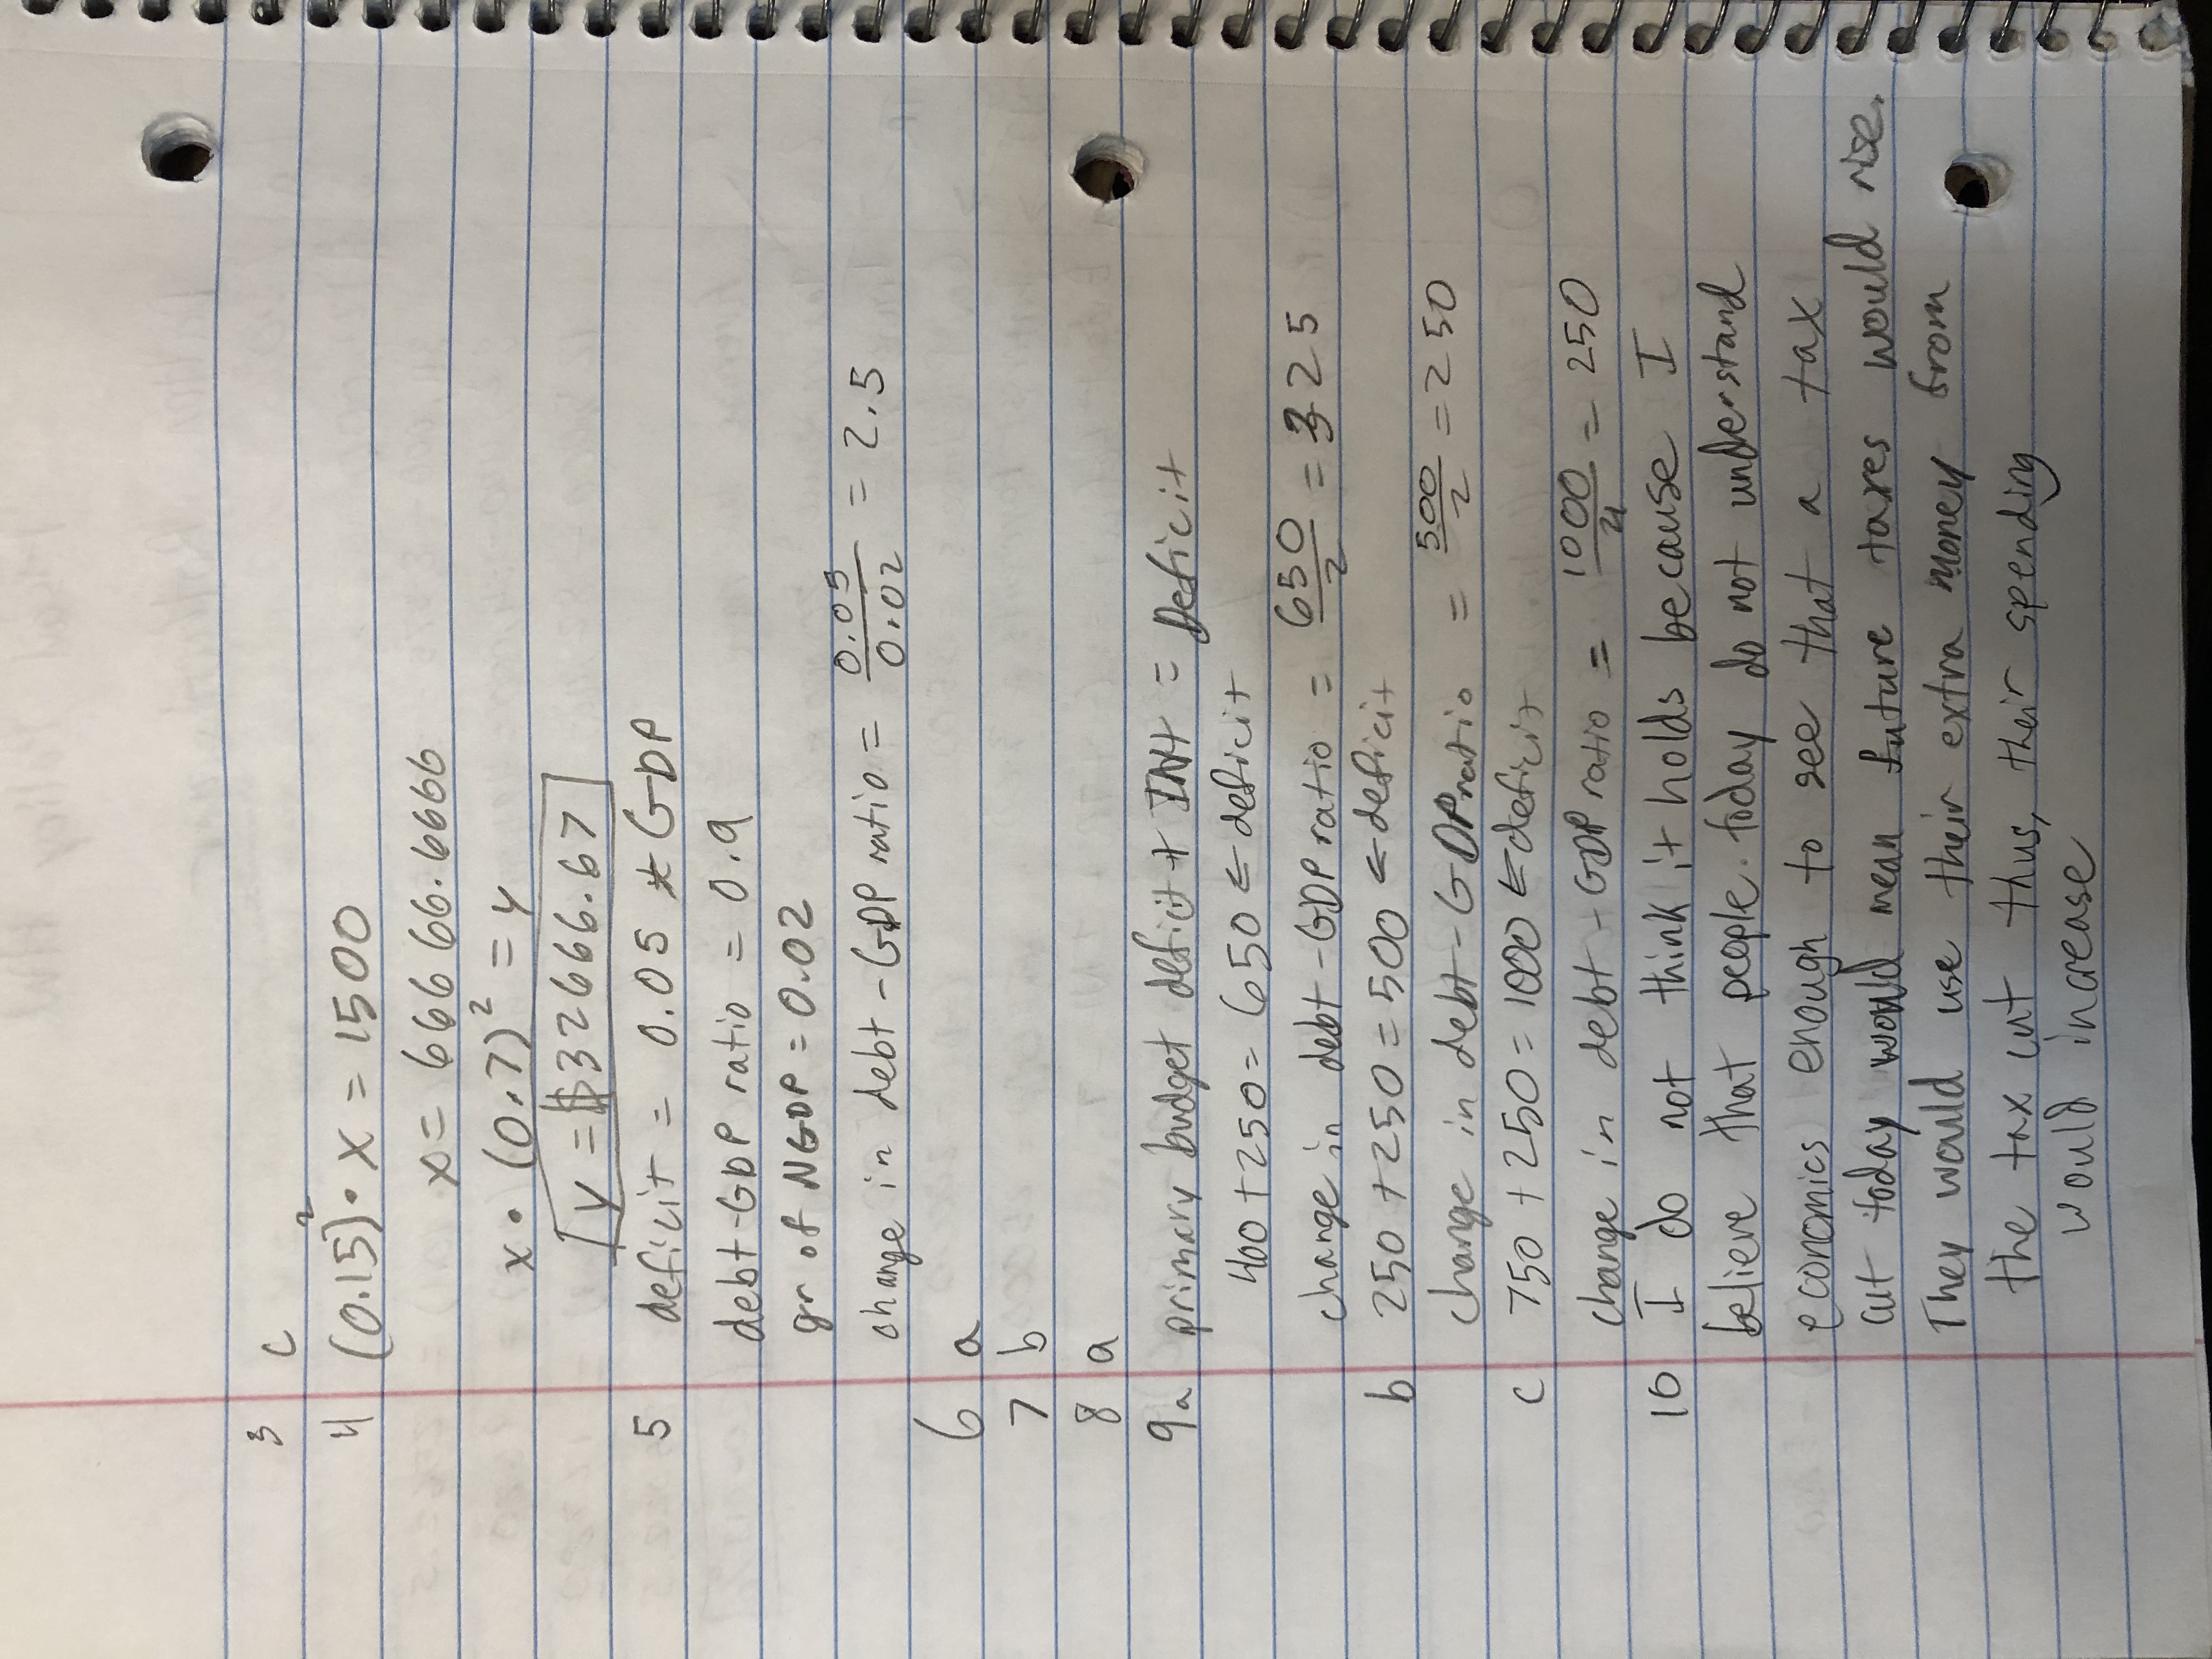 Fiscal Policy HW
3 c
4 (0.15)² · x = 1500
x = 66666.6666
x · (0.7)² = y
y = $32666.67
5 deficit = 0.05 * GDP
debt-GDP ratio = 0.9
gr of NGDP = 0.02
change in debt-GDP ratio = 0.05/0.02 = 2.5
6 a
7 b
8 a
9a primary budget deficit + INT = Deficit
400 + 250 = 650 ← deficit
change in debt-GDP ratio = 650/2 = 325
b 250 + 250 = 500 ← deficit
change in debt-GDP ratio = 500/2 = 250
c 750 + 250 = 1000 ← deficit
change in debt-GDP ratio = 1000/4 = 250
10 I do not think it holds because I
believe that people today do not understand
economics enough to see that a tax
cut today would mean future taxes would rise.
They would use their extra money from
the tax cut thus, their spending
would increase